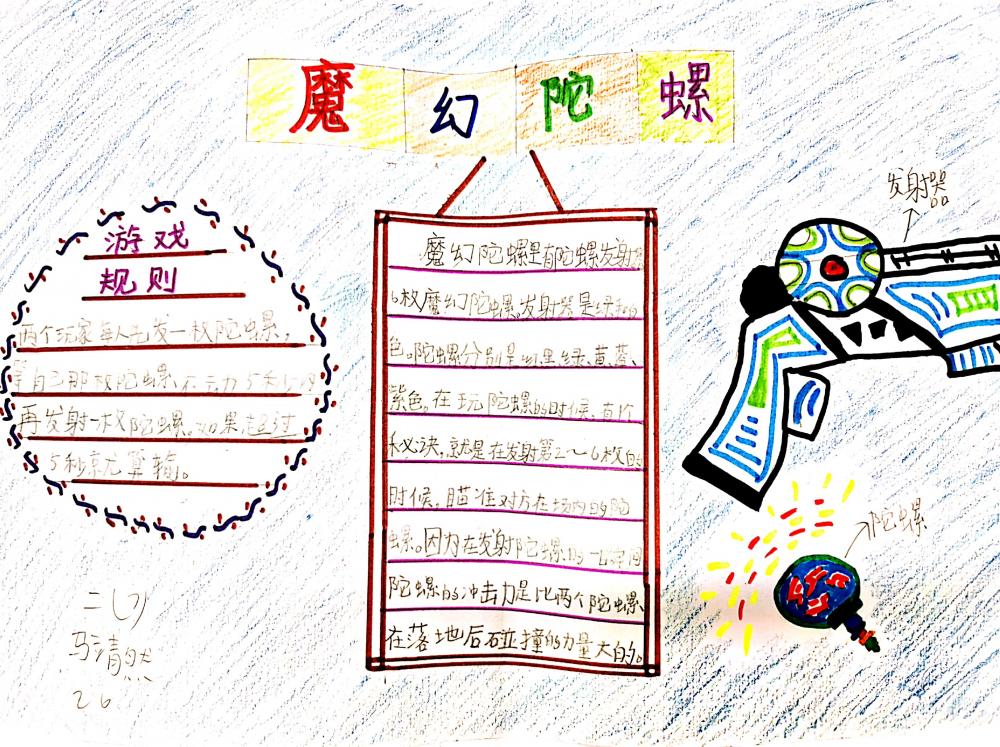 魔幻陀螺
发射器
游戏
规则
两个玩家每人先发一枚陀螺,
自己那枚陀螺
再发射一枚陀螺。如果超过
5秒就算输。
魔幻陀螺是有陀螺发射
6枚魔幻陀螺。发射器是绿和白
色。陀螺分别是红黑绿、黄、蓝、
紫色。在玩陀螺的时候,有个
秘诀,就是在发射第2～6枚的
时候,瞄准对方在场内的陀
螺。因为在发射陀螺的一瞬间
陀螺的冲击力是比两个陀螺
在落地后碰撞的力量大的。
陀螺
二(7)
马清然
26